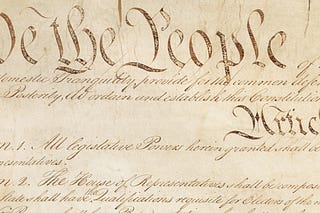 We the People
Domestic Tranquility, provide for the common
Posterity, do ordain and establish this Constitution
Artic
n. 1. All legislative Powers herein granted shall be
resentatives.
n. 2. The House of Representatives shall be compos
State shall have the Qualifications requisite for Electors of the